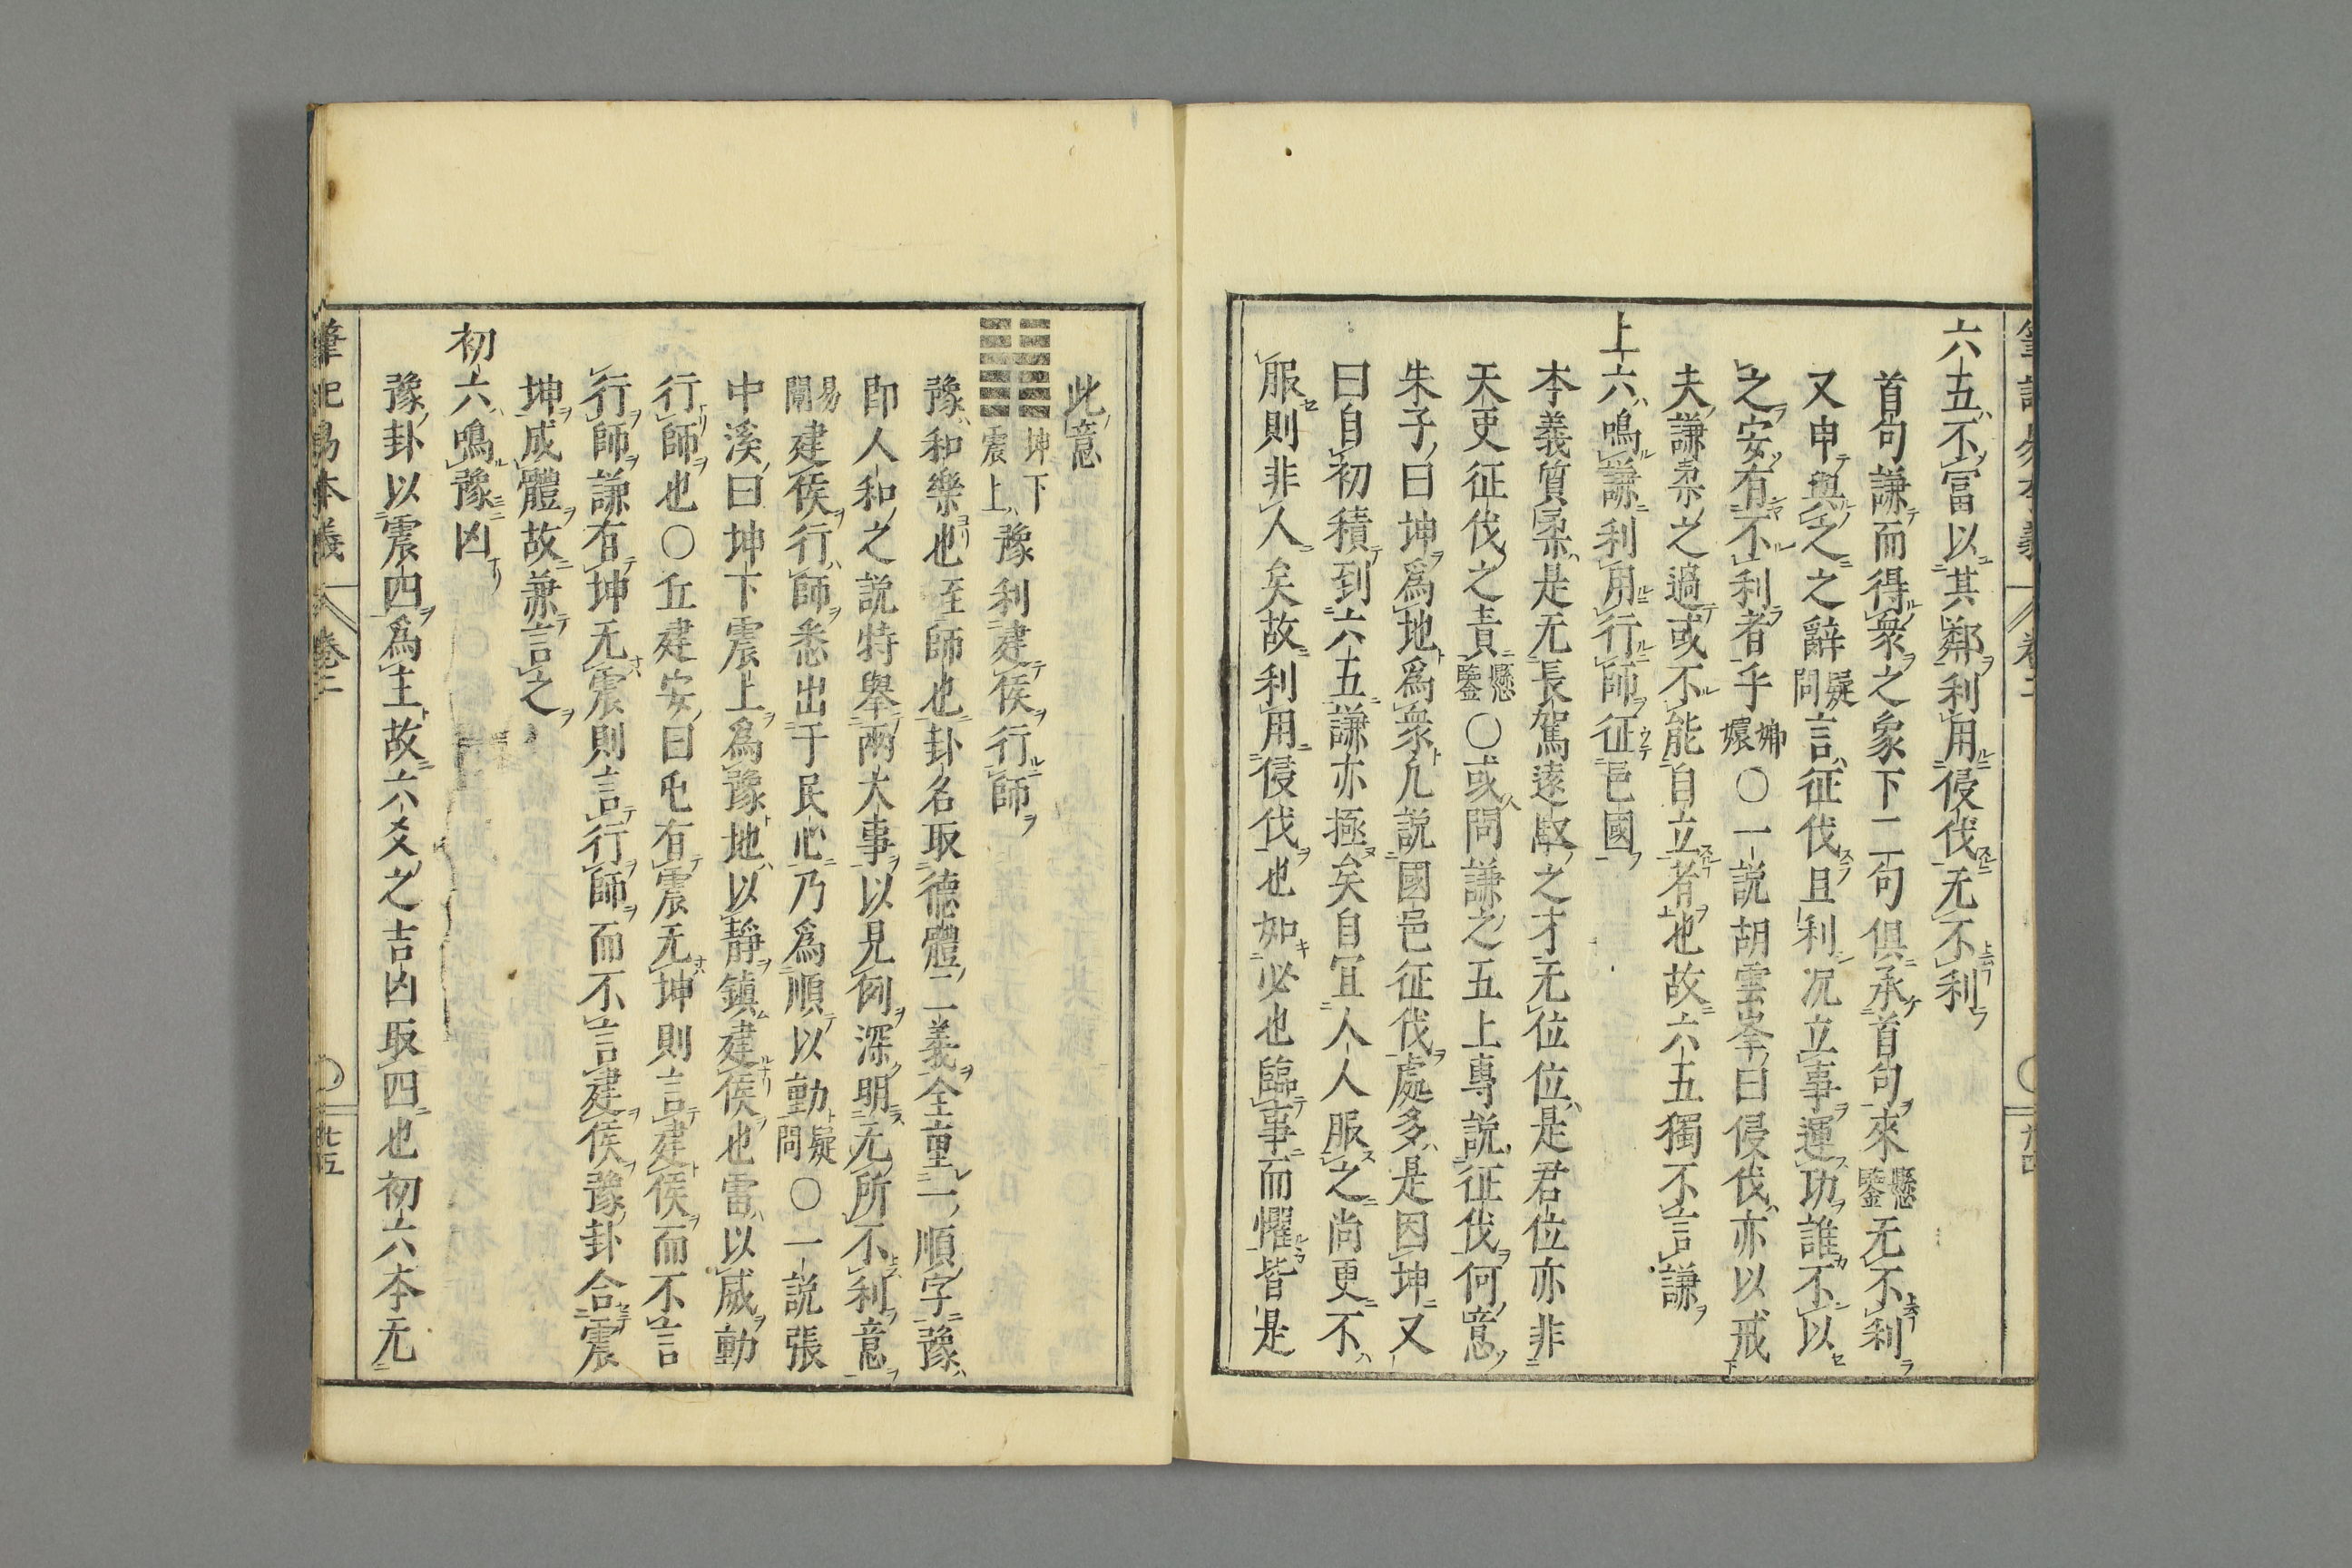 六五不富以其鄰利用侵伐无不利
首句謙而得衆之象下二句俱承首句來懸鑒无不利
又申與之之辭疑問言征伐且利況立事運功誰不以
之安有不利者乎嫏嬛○一說胡雲峯曰侵伐亦以戒
夫謙柔之過或不能自立者也故六五獨不言謙
上六鳴謙利用行師征邑國
本義質柔是无長駕遠馭之才无位位是君位亦非
天吏征伐之責懸鑒○或問謙之五上專說征伐何意
朱子曰坤爲地爲衆凡說國邑征伐處多是因坤又
曰自初積到六五謙亦極矣自宜人人服之尚更不
服則非人矣故利用侵伐也如必也臨事而懼皆是
此意
坤下震上豫利建侯行師
豫和樂也至師也卦名取德體二義全重一順字豫
即人和之說特舉兩大事以見例深明无所不利意
易闡建侯行師悉出于民心乃爲順以動疑問○一說張
中溪曰坤下震上爲豫地以靜鎮建侯也雷以威動
行師也○丘建安曰屯有震无坤則言建侯而不言
行師謙有坤无震則言行師而不言建侯豫卦合震
坤成體故兼言之
初六鳴豫凶
豫卦以震四爲主故六爻之吉凶取四也初六本无
筆記易本義 卷二 廿五